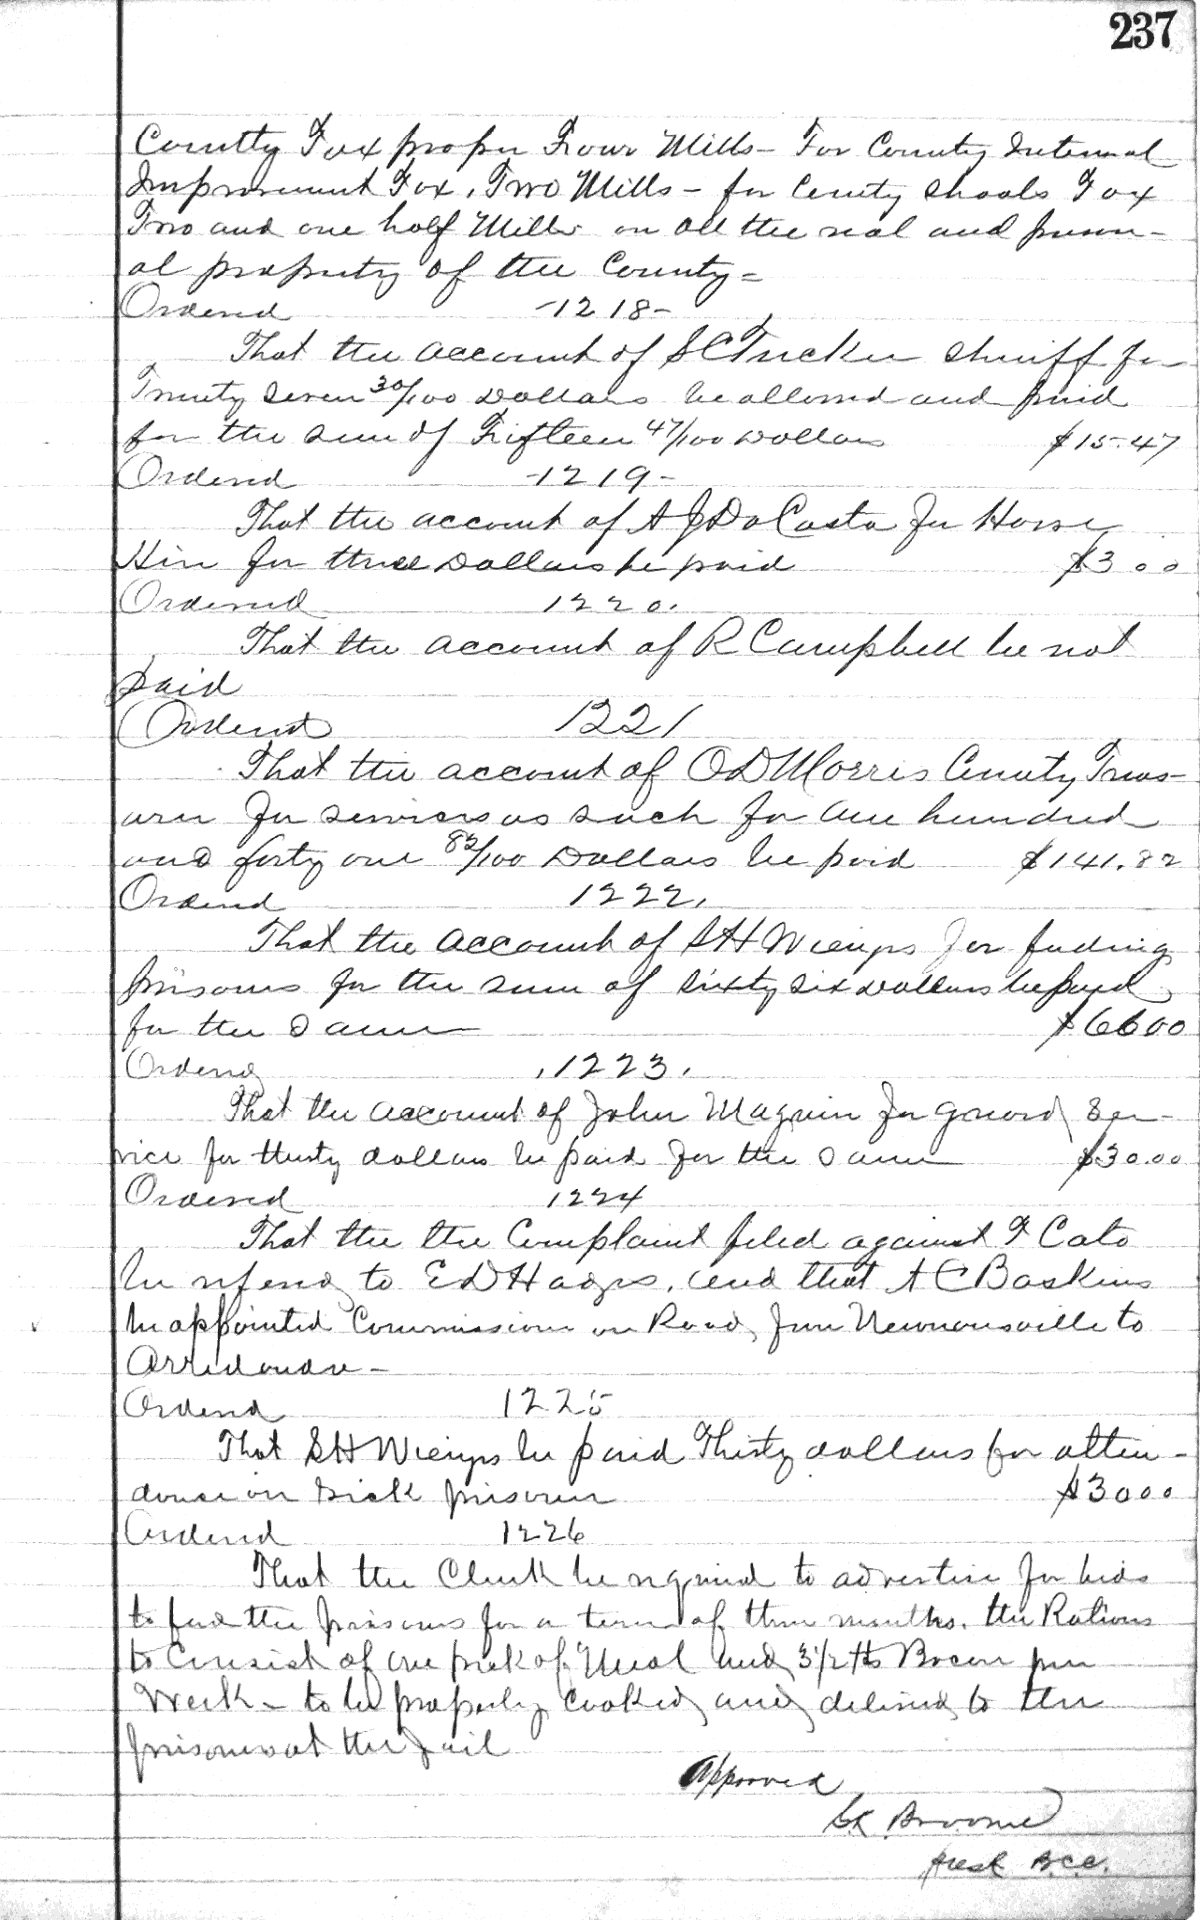 237
County Tax proper Four Mills - For County Internal
Improvement Tax, Two Mills - for County Shools Tax
Two and one half Mills on all the real and person-
al property of the County =
Ordered -1218-
That the account of S C Tucker Sheriff for
Twenty Seven 30/100 Dollars be allowed and paid
for the sum of Fifteen 47/100 Dollars $15.47
Ordered -1219-
That the account of A J DaCosta for Horse
Hire for three Dollars be paid $3 00
Ordered 1220.
That the account of R Campbell be not
paid
Ordered 1221
That the account of O D Morris County Treas-
urer for services as such for one hundred
and forty one 82/100 Dollars be paid $141.82
Ordered 1222.
That the account of S H Wienges for feeding
prisoners for the sum of sixty six dollars be paid
for the same $66 00
Ordered .1223.
That the account of John Maguin for guard Ser-
vice for thirty dollars be paid for the same $30.00
Ordered 1224
That the the Complaint filed against F Cato
be refered to E D Hages, and that A C Baskins
be appointed Commissioner on Road, from Newnansville to
Arredondo -
Ordered 1225
That S H Wienges be paid Thirty dollars for atten-
dance on sick prisoner $30 00
Ordered 1226
That the Clerk be required to advertise for bids
to feed the prisoners for a term of three months. the Rations
to Consist of one peck of Meal and 3 1/2 lbs Bacon per
Week - to be properly cooked and delivered to the
prisoners at the Jail
Approved
Broome
Prest B.C.C.